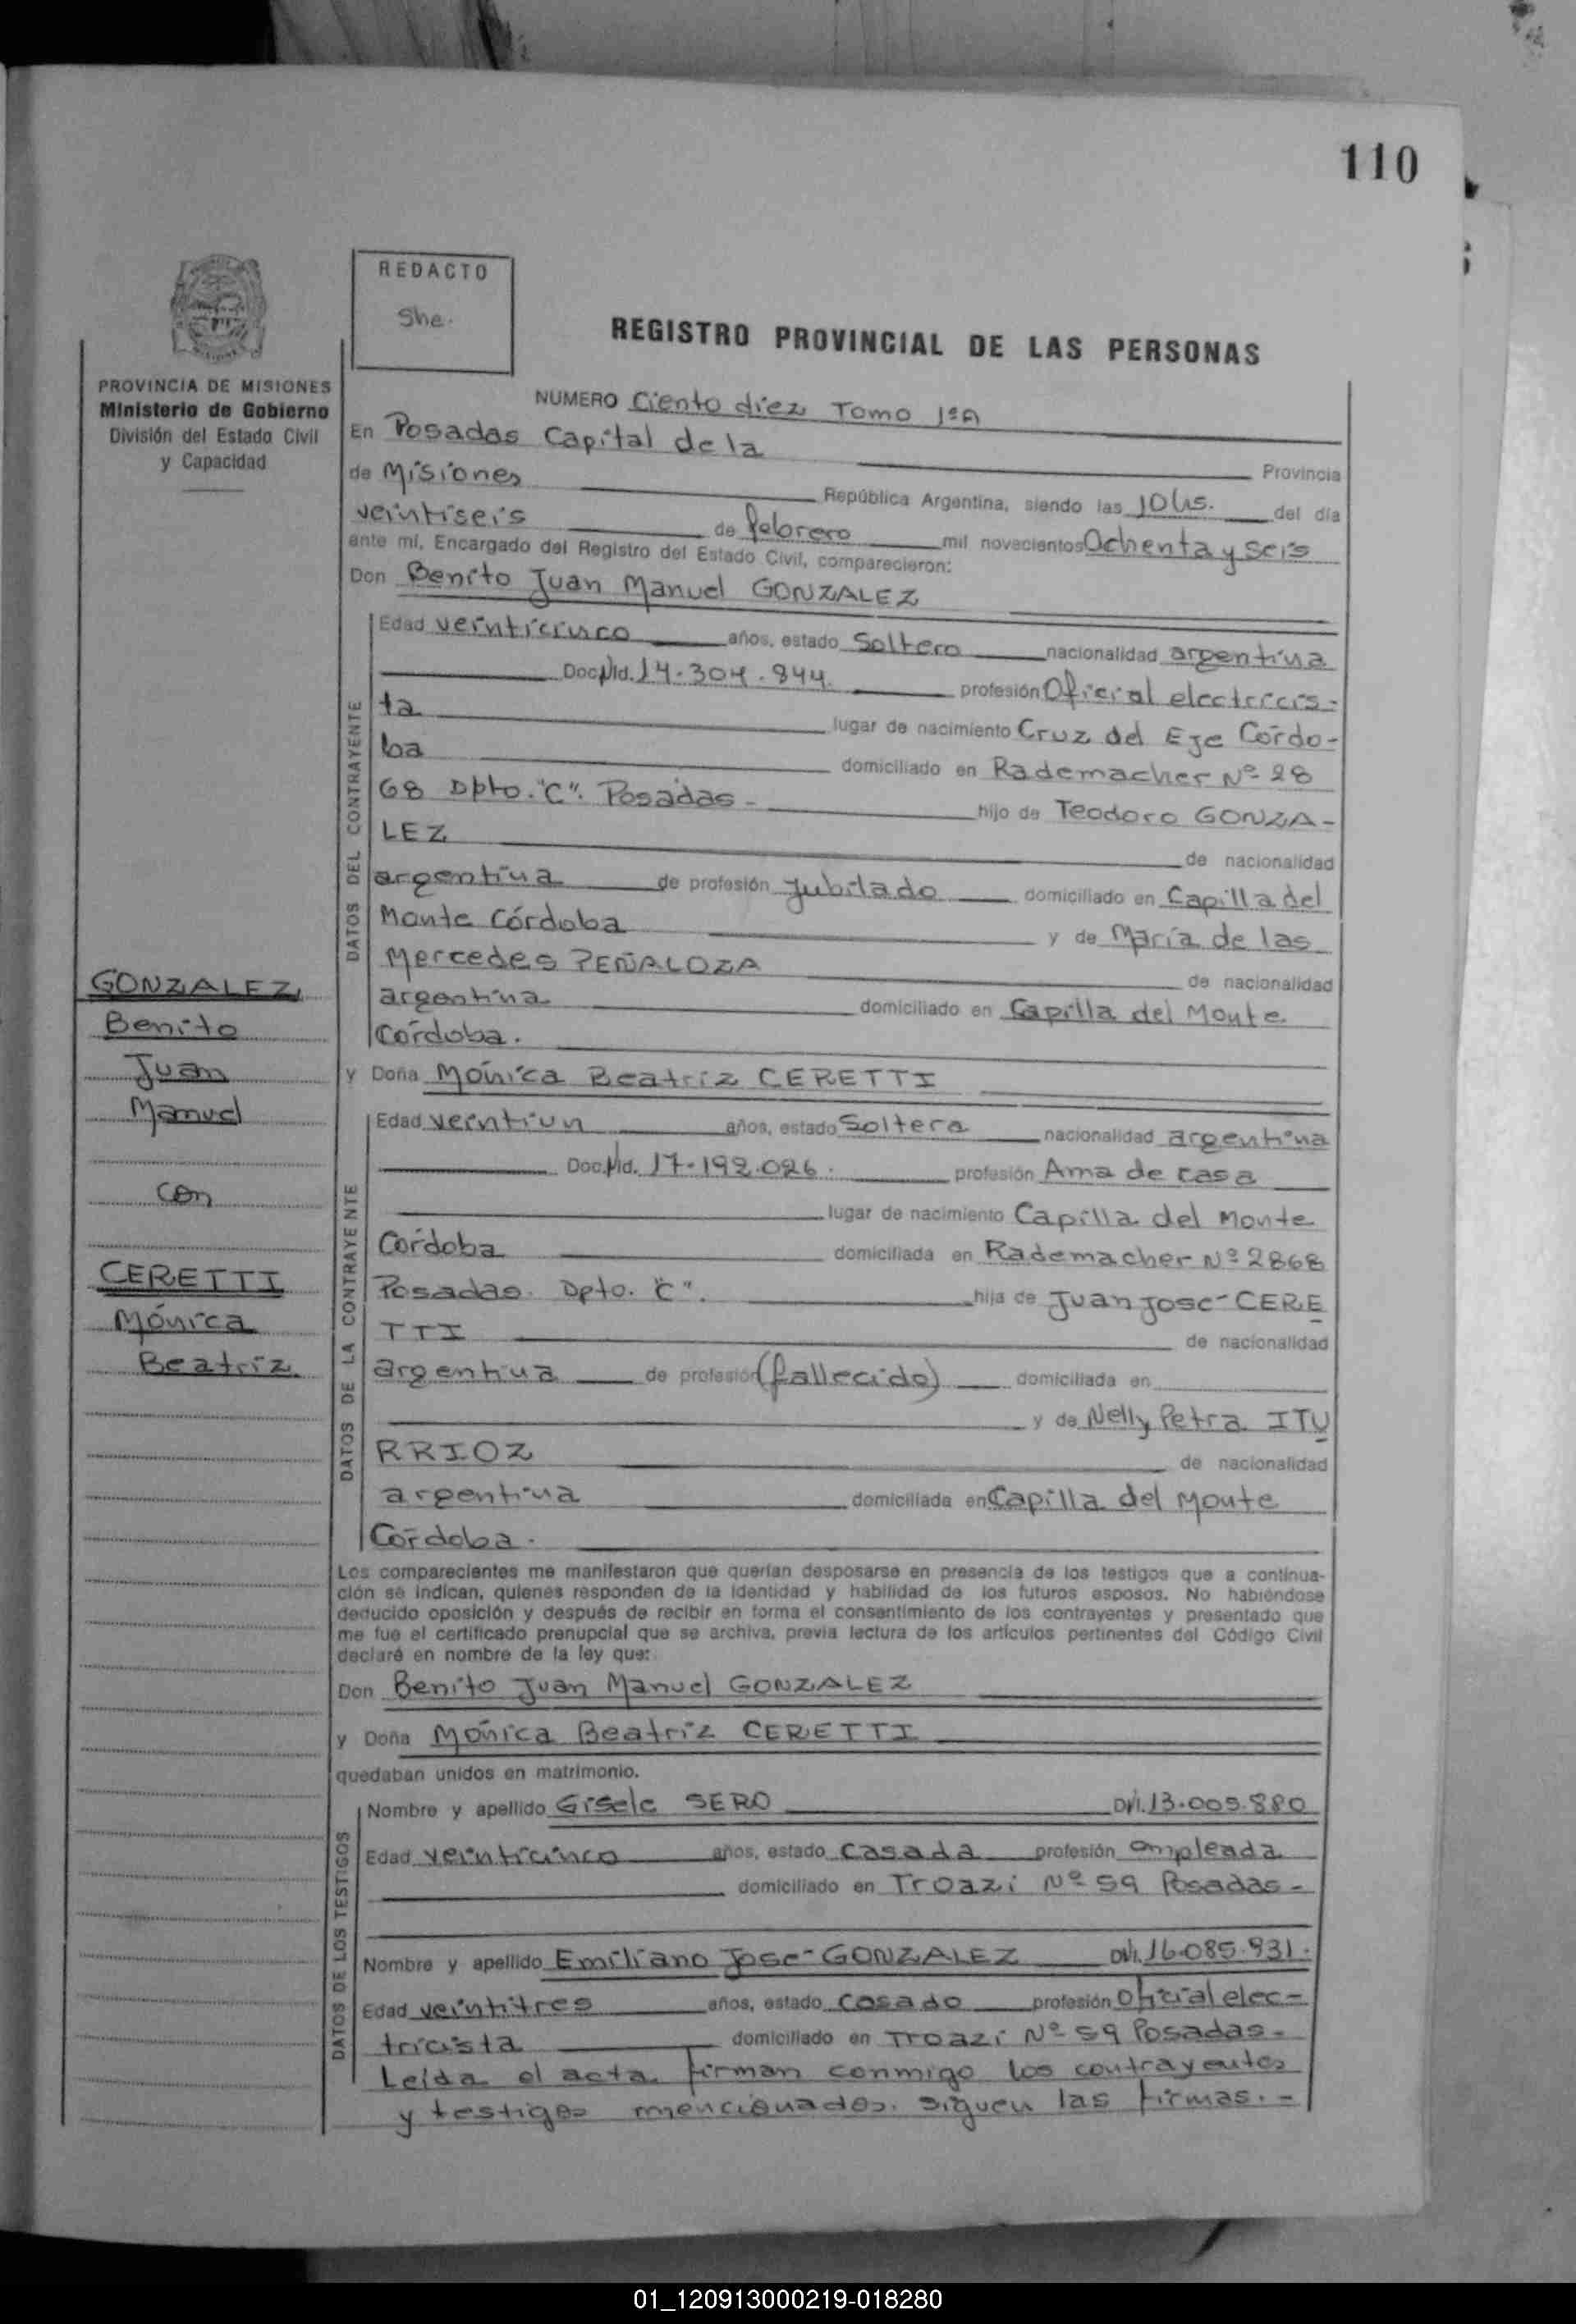 110
REDACTO
She.
REGISTRO PROVINCIAL DE LAS PERSONAS
PROVINCIA DE MISIONES
Ministerio de Gobierno
División del Estado Civil
y Capacidad
NUMERO Ciento diez Tomo 1ºA
En Posadas Capital de la Provincia
de Misiones República Argentina, siendo las 10 hs. del día
veintiseis de febrero mil novecientos Ochenta y seis
ante mí, Encargado del Registro del Estado Civil, comparecieron:
Don Benito Juan Manuel GONZALEZ
DATOS DEL CONTRAYENTE
Edad veinticinco años, estado Soltero nacionalidad argentina
Doc. Nid. 14.304.844. profesión Oficial electricis-
ta lugar de nacimiento Cruz del Eje Córdo-
ba domiciliado en Rademacher Nº 28
68 Dpto. "C". Posadas - hijo de Teodoro GONZA-
LEZ de nacionalidad
argentina de profesión Jubilado domiciliado en Capilla del
Monte Córdoba y de María de las
Mercedes PEÑALOZA de nacionalidad
argentina domiciliado en Capilla del Monte
Córdoba.
y Doña Mónica Beatriz CERETTI
GONZALEZ
Benito
Juan
Manuel
con
CERETTI
Mónica
Beatriz
DATOS DE LA CONTRAYENTE
Edad veintiun años, estado Soltera nacionalidad argentina
Doc. Nid. 17.192.026. profesión Ama de casa
lugar de nacimiento Capilla del Monte
Córdoba domiciliada en Rademacher Nº 2868
Posadas. Dpto. "C". hija de Juan José CERE
TTI de nacionalidad
argentina de profesión (fallecido) domiciliada en
y de Nelly Petra ITU
RRIOZ de nacionalidad
argentina domiciliada en Capilla del Monte
Córdoba.
Los comparecientes me manifestaron que querían desposarse en presencia de los testigos que a continua-
ción se indican, quienes responden de la identidad y habilidad de los futuros esposos. No habiéndose
deducido oposición y después de recibir en forma el consentimiento de los contrayentes y presentado que
me fue el certificado prenupcial que se archiva, previa lectura de los artículos pertinentes del Código Civil
declaré en nombre de la ley que:
Don Benito Juan Manuel GONZALEZ
y Doña Mónica Beatriz CERETTI
quedaban unidos en matrimonio.
DATOS DE LOS TESTIGOS
Nombre y apellido Gisele SERO DNI. 13.005.880
Edad veinticinco años, estado casada profesión empleada
domiciliado en Troazi Nº 59 Posadas -
Nombre y apellido Emiliano José GONZALEZ DNI. 16.085.931.
Edad veintitres años, estado casado profesión Oficial elec-
tricista domiciliado en Troazi Nº 59 Posadas -
Leída el acta firman conmigo los contrayentes
y testigos mencionados. Siguen las firmas. -
01_120913000219-018280